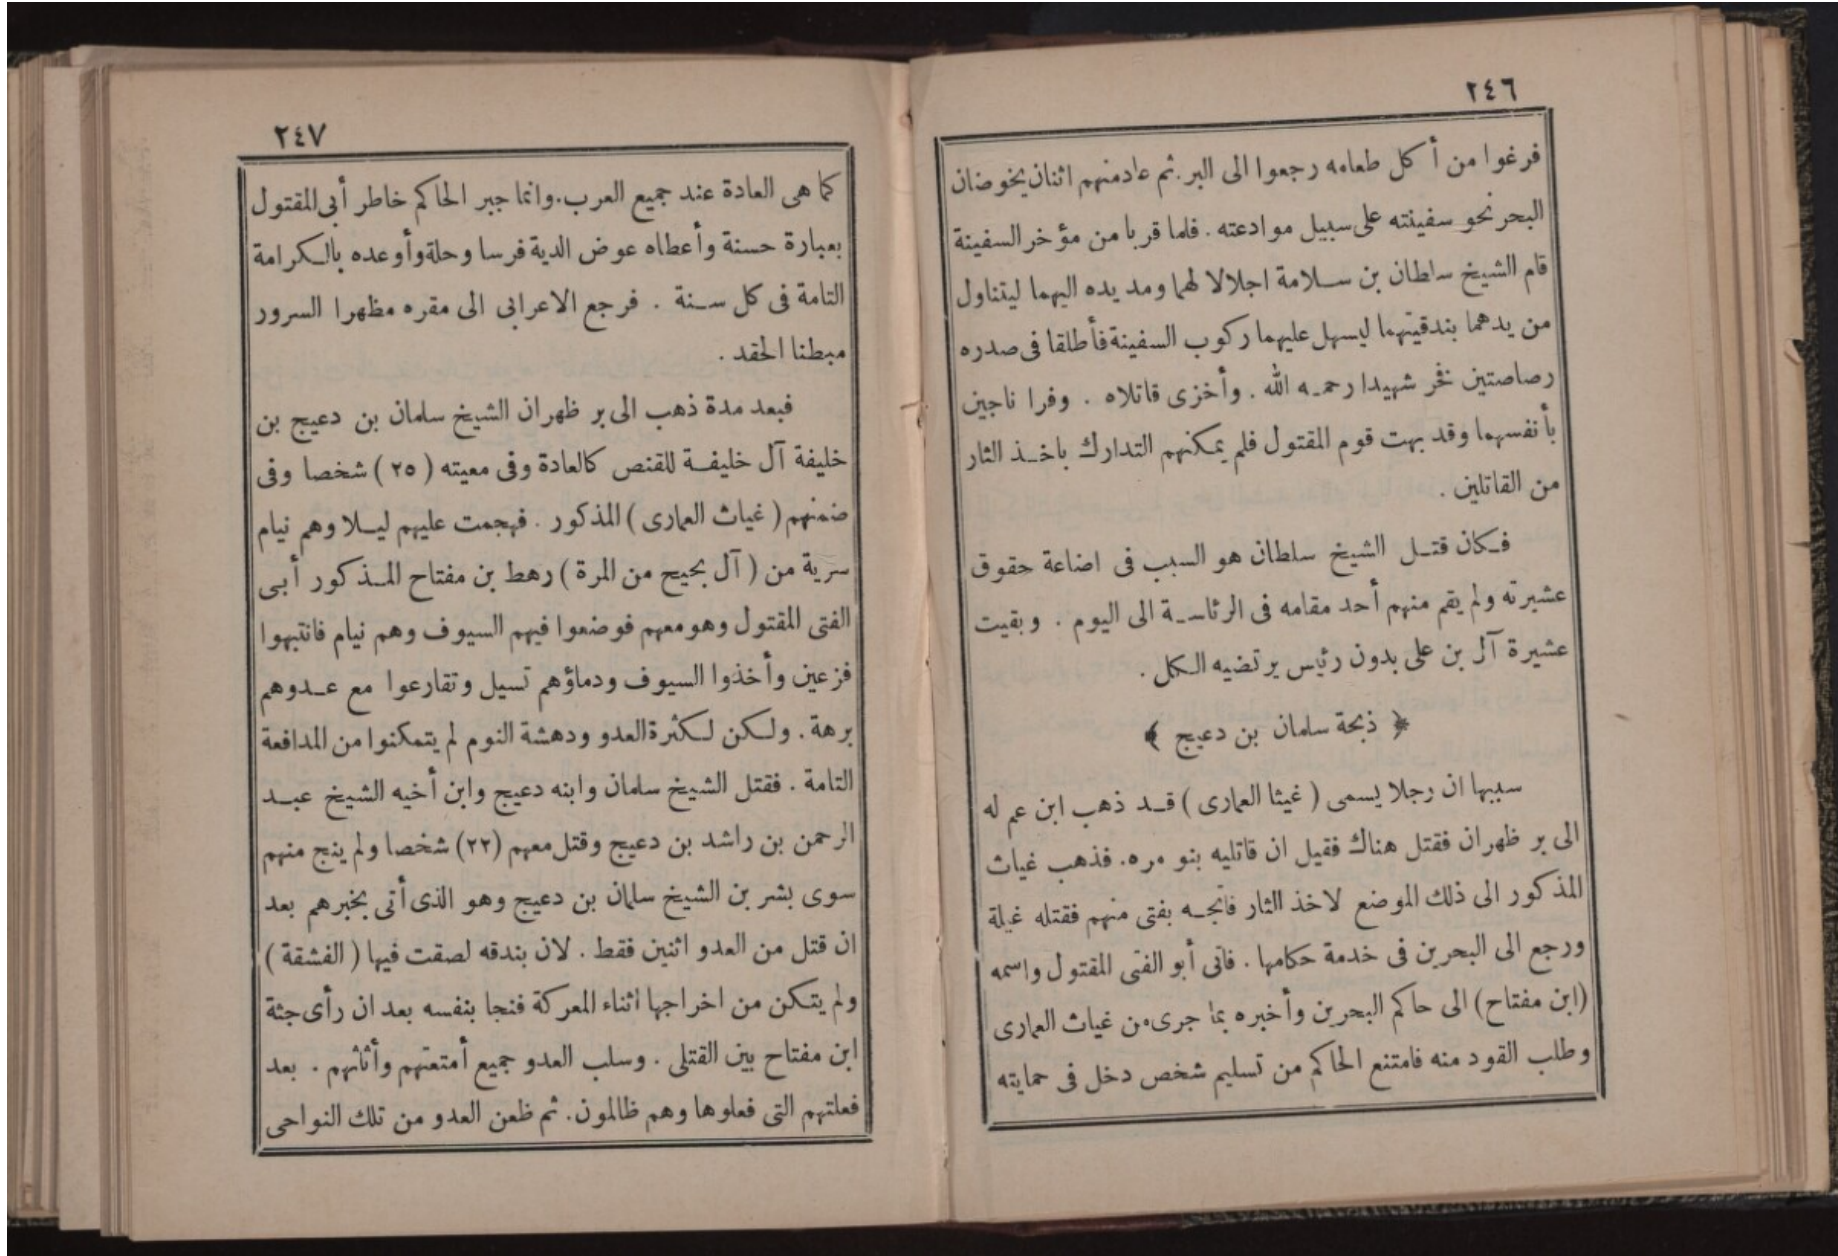 ٢٤٦
فرغوا من أكل طعامه رجعوا الى البر. ثم عاد منهم اثنان يخوضان
البحر نحو سفينته على سبيل موادعته . فلما قربا من مؤخر السفينة
قام الشيخ سلطان بن سلامة اجلالا لهما ومد يده اليهما ليتناول
من يدهما بندقيتهما ليسهل عليهما ركوب السفينة فأطلقا فى صدره
رصاصتين فخر شهيدا رحمه الله . وأخزى قاتلاه . وفرا ناجين
بأنفسهما وقد بهت قوم المقتول فلم يمكنهم التدارك باخذ الثار
من القاتلين .
فكان قتل الشيخ سلطان هو السبب فى اضاعة حقوق
عشيرته ولم يقم منهم أحد مقامه فى الرئاسة الى اليوم . وبقيت
عشيرة آل بن على بدون رئيس يرتضيه الكل .
﴿ ذبحة سلمان بن دعيج ﴾
سببها ان رجلا يسمى ( غيثا العمارى ) قد ذهب ابن عم له
الى بر ظهران فقتل هناك فقيل ان قاتليه بنو مره. فذهب غياث
المذكور الى ذلك الموضع لاخذ الثار فاتجه بفتى منهم فقتله غيلة
ورجع الى البحرين فى خدمة حكامها . فاتى أبو الفتى المقتول واسمه
(ابن مفتاح) الى حاكم البحرين وأخبره بما جرى من غياث العمارى
وطلب القود منه فامتنع الحاكم من تسليم شخص دخل فى حمايته
٢٤٧
كما هى العادة عند جميع العرب. وانما جبر الحاكم خاطر أبى المقتول
بعبارة حسنة وأعطاه عوض الدية فرسا وحلة وأوعده بالكرامة
التامة فى كل سنة . فرجع الاعرابى الى مقره مظهرا السرور
مبطنا الحقد .
فبعد مدة ذهب الى بر ظهران الشيخ سلمان بن دعيج بن
خليفة آل خليفة للقنص كالعادة وفى معيته ( ٢٥ ) شخصا وفى
ضمنهم ( غياث العمارى ) المذكور . فهجمت عليهم ليلا وهم نيام
سرية من ( آل بحيح من المرة ) رهط بن مفتاح المذكور أبى
الفتى المقتول وهو معهم فوضعوا فيهم السيوف وهم نيام فانتبهوا
فزعين وأخذوا السيوف ودماؤهم تسيل وتقارعوا مع عدوهم
برهة . ولكن لكثرة العدو ودهشة النوم لم يتمكنوا من المدافعة
التامة . فقتل الشيخ سلمان وابنه دعيج وابن أخيه الشيخ عبد
الرحمن بن راشد بن دعيج وقتل معهم (٢٢) شخصا ولم ينج منهم
سوى بشر بن الشيخ سلمان بن دعيج وهو الذى أتى بخبرهم بعد
ان قتل من العدو اثنين فقط . لان بندقه لصقت فيها ( الفشقة )
ولم يتكن من اخراجها اثناء المعركة فنجا بنفسه بعد ان رأى جثة
ابن مفتاح بين القتلى . وسلب العدو جميع أمتعتهم وأثاثهم . بعد
فعلتهم التى فعلوها وهم ظالمون. ثم ظعن العدو من تلك النواحى